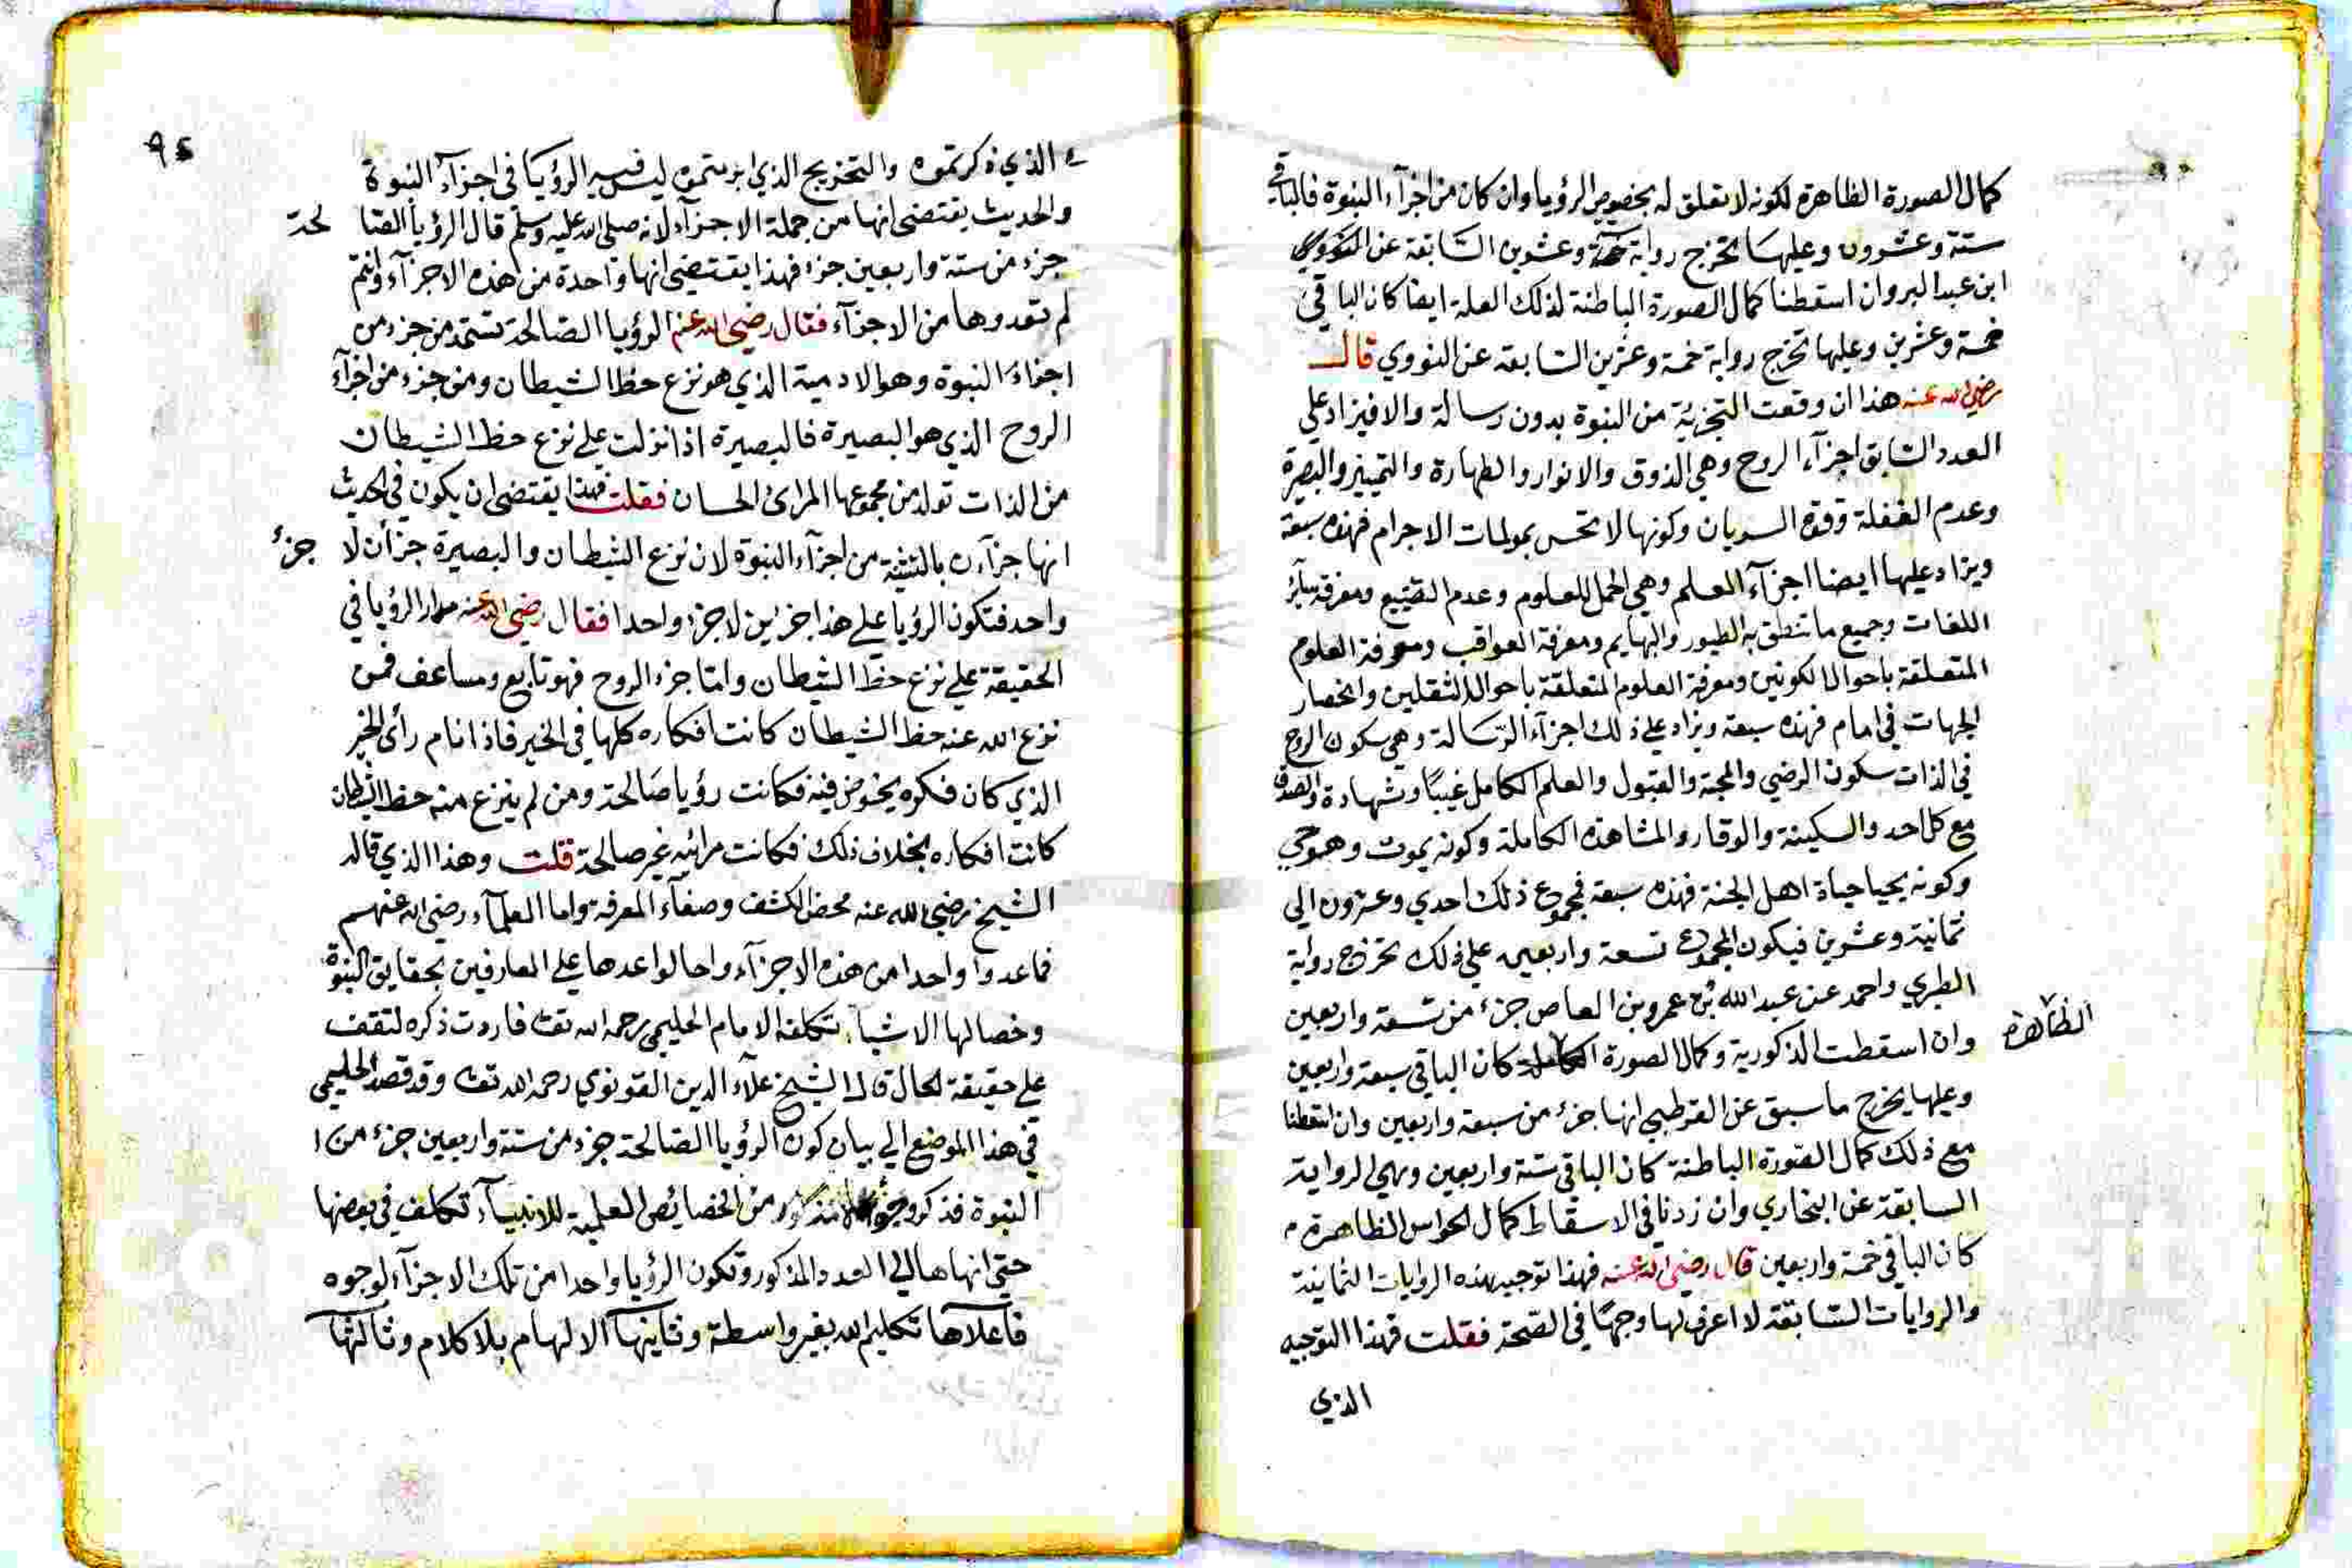 كمال الصورة الظاهرة لكونه لا تعلق له بخصوص الرؤيا وان كان من اجزآء النبوة فالباقي
ستة وعشرون وعليها تخرج رواية ستة وعشرين السابقة عن
ابن عبد البر وان اسقطنا كمال الصورة الباطنة لذلك العلة ايضا كان الباقي
خمسة وعشرين وعليها تخرج رواية خمسة وعشرين السابقة عن النووي قال
رضي الله عنه هذا ان وقعت التجزئة من النبوة بدون رسالة والا فيزاد على
العدد السابق اجزآء الروح وهي الذوق والانوار والطهارة والتمييز والبصيرة
وعدم الغفلة وقوة السريان وكونها لا تحس بمولمات الاجرام فهذه سبعة
ويزاد عليها ايضا اجزآء العلم وهي الحمل للعلوم وعدم التضييع ومعرفة سآئر
اللغات وجميع ما تنطق به الطيور والبهايم ومعرفة العواقب ومعرفة العلوم
المتعلقة باحوال الكونين ومعرفة العلوم المتعلقة باحوال الثقلين وانحصار
الجهات في امام فهذه سبعة ويزاد على ذلك اجزآء الرسالة وهي سكون الروح
في الذات سكون الرضي والمحبة والقبول والعلم الكامل غيبًا وشهادة والصدق
مع كل احد والسكينة والوقار والمشاهدة الكاملة وكونه يموت وهو حي
وكونه يحيا حياة اهل الجنة فهذه سبعة فمجموع ذلك احدي وعشرون الي
ثمانية وعشرين فيكون المجموع تسعة واربعين علي ذلك تخرج رواية
الطبري واحمد عن عبد الله بن عمرو بن العاص جزء من تسعة واربعين
وان اسقطت الذكورية وكمال الصورة الكاملة كان الباقي سبعة واربعين
الظاهرة
وعليها يخرج ما سبق عن القرطبي انها جزء من سبعة واربعين وان اسقطنا
مع ذلك كمال الصورة الباطنة كان الباقي ستة واربعين وهي الرواية
السابقة عن البخاري وان زدنا في الاسقاط كمال الحواس الظاهرة
كان الباقي خمسة واربعين قال رضي الله عنه فهذا توجيه هذه الروايات الثمانية
والروايات السابقة لا اعرف لها وجها في الصحة فقلت فهذا التوجيه
الذي
٩٤
الذي ذكرتموه والتخريج الذي ابرمتموه ليس فيه الرؤيا في اجزآء النبوة
والحديث يقتضي انها من جملة الاجزآء لانه صلى الله عليه وسلم قال الرؤيا الصا لحة
جزء من ستة واربعين جزء فهذا يقتضي انها واحدة من هذه الاجزآء وانتم
لم تعدوها من الاجزآء فقال رضي الله عنه الرؤيا الصالحة تستمد من جزء من
اجزاء النبوة وهو الادمية الذي هو نزع حظ الشيطان ومن جزء من اجزآء
الروح الذي هو البصيرة فالبصيرة اذا نزلت علي نزع حظ الشيطان
من الذات تولد من مجموعها المرائ الحسان فقلت فهذا يقتضي ان يكون في الحديث
انها جزآن بالتثنية من اجزآء النبوة لان نزع الشيطان والبصيرة جزأن لا جزء
واحد فتكون الرؤيا علي هذا جزئين لا جزء واحدا فقال رضي الله عنه مدار الرؤيا في
الحقيقة علي نزع حظ الشيطان واما جزء الروح فهو تابع ومساعف فمن
نزع الله عنه حظ الشيطان كانت افكاره كلها في الخير فاذا نام رأى الخير
الذي كان فكره يخوض فيه فكانت رؤيا صالحة ومن لم ينزع منه حظ الشيطان
كانت افكاره بخلاف ذلك فكانت مرائيه غير صالحة قلت وهذا الذي قاله
الشيخ رضي الله عنه محض الكشف وصفاء المعرفة واما العلمآء رضي الله عنهم
فما عدوا واحدا من هذه الاجزآء واحالوا عدها علي العارفين بحقايق النبوة
وخصالها الا شيا تكلفه الامام الحليمي رحمه الله تعا فاردت ذكره لتقف
علي حقيقة الحال قال الشيخ علآء الدين القونوي رحمه الله تعا وقد قصد الحليمي
في هذا الموضع الي بيان كون الرؤيا الصالحة جزء من ستة واربعين جزء من
النبوة فذكر وجوها من الخصائص العلمية للانبيآء تكلف في بعضها
حتى انهاها الي العدد المذكور وتكون الرؤيا واحدا من تلك الاجزآء لوجوه
فاعلاها تكليم الله بغير واسطة وثانيها الالهام بلا كلام وثالثها